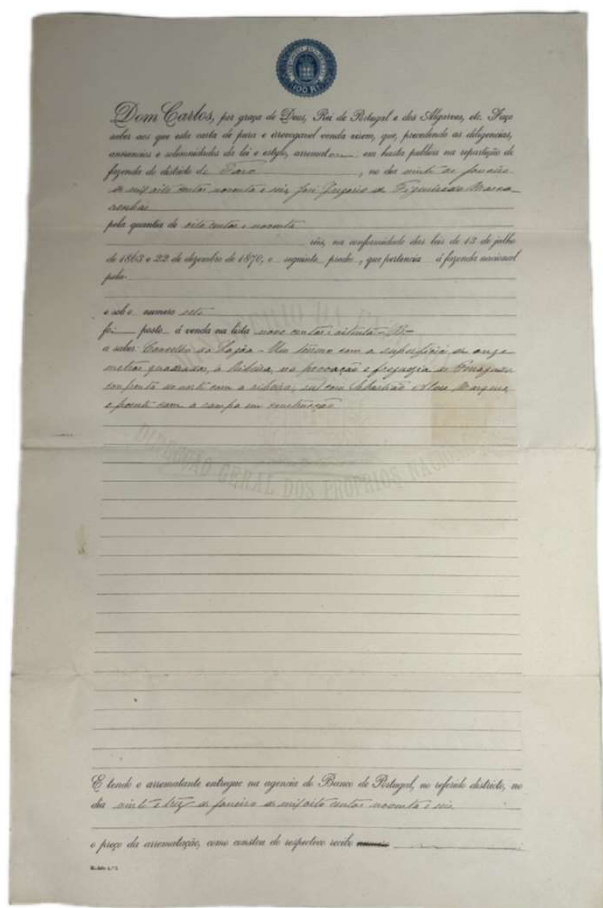 100 RS
Dom Carlos, por graça de Deus, Rei de Portugal e dos Algarves, etc. Faço
saber aos que esta carta de pura e irrevogavel venda virem, que, precedendo as diligencias,
annuncios e solemnidades da lei e estylo, arrematou em hasta publica na repartição de
fazenda do districto de Faro, no dia vinte de janeiro
de mil oito centos noventa e seis José Gregorio de Figueiredo Mascarenhas
pela quantia de oito centos e noventa
réis, na conformidade das leis de 13 de julho
de 1863 e 22 de dezembro de 1870, o seguinte predio, que pertencia á fazenda nacional
pela
e sob o numero sete
foi posto á venda na lista novecentos e oitenta
a saber: Concelho de Lagôa - Um terreno com a superficie de onze
metros quadrados, á ribeira, na povoação e freguezia de
confronta do norte com a ribeira, sul com Sebastião Alves Marques,
e poente com a rampa em construcção
DIRECÇÃO GERAL DOS PROPRIOS NACIONAES
E tendo o arrematante entregue na agencia do Banco de Portugal, no referido districto, no
dia vinte e trez de janeiro de mil oito centos noventa e seis
o preço da arrematação, como constou do respectivo recibo numero
Modelo n.º 1